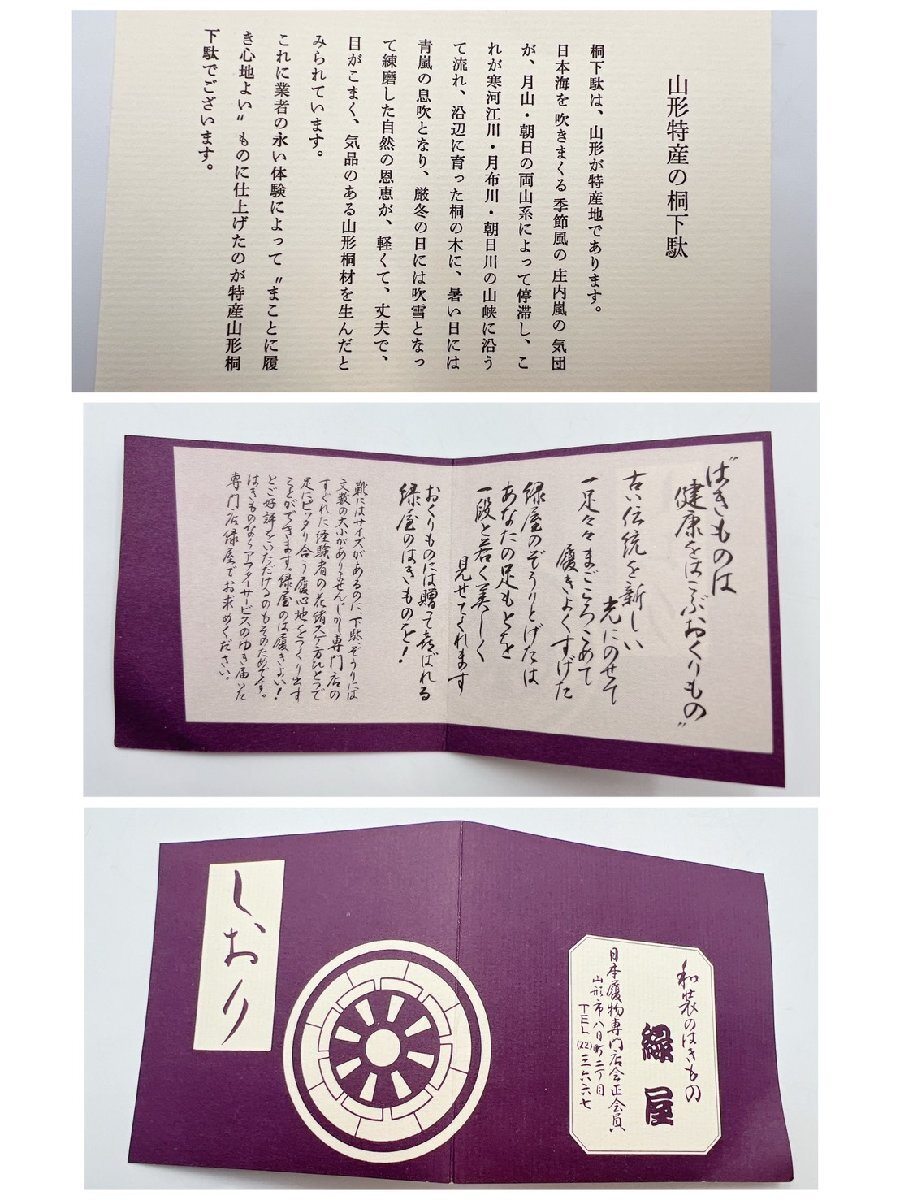 山形特産の桐下駄
桐下駄は、山形が特産地であります。
日本海を吹きまくる季節風の庄内嵐の気団
が、月山・朝日の両山系によって停滞し、こ
れが寒河江川・月布川・朝日川の山峡に沿う
て流れ、沿辺に育った桐の木に、暑い日には
青嵐の息吹となり、厳冬の日には吹雪となっ
て練磨した自然の恩恵が、軽くて、丈夫で、
目がこまく、気品のある山形桐材を生んだと
みられています。
これに業者の永い体験によって〝まことに履
き心地よい〟ものに仕上げたのが特産山形桐
下駄でございます。
〝はきものは
健康をはこぶおくりもの〟
古い伝統を新しい
光にのせて
一足々々まごころこめて
履きよくすげた
緑屋のぞうりとげたは
あなたの足もとを
一段と若く美しく
見せてくれます
おくりものには贈って喜ばれる
緑屋のはきものを！
靴にはサイズがあるのに下駄ぞうりは
文数の大小がありません。しかし専門店の
すぐれた経験者の花緒スゲ方ひとつで
足にピッタリ合う履心地をつくり出す
ことができます。緑屋のは履きよい！
とご好評をいただけるのもそのためです。
はきものならアフターサービスのゆき届いた
専門店緑屋でお求めください。
しおり
和装のはきもの
緑屋
日本履物専門店会正会員
山形市八日町二丁目
TEL(22)三六六七